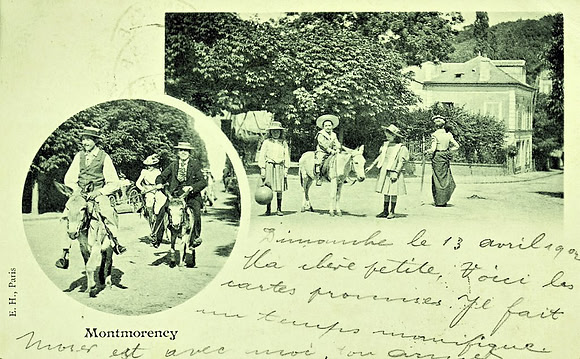 Dimanche le 13 avril 190
Ma chère petite, Voici les
cartes promises. Je fait
un temps magnifique.
est avec moi, ton
Montmorency
E. H., Paris